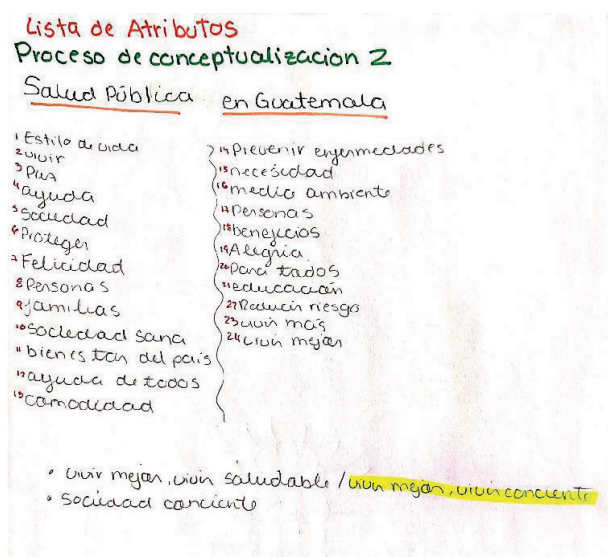 Lista de Atributos
Proceso de conceptualizacion 2
Salud Pública en Guatemala
1 Estilo de vida
2 vivir
3 Paz
4 ayuda
5 Sociedad
6 Proteger
7 Felicidad
8 Personas
9 familias
10 Sociedad sana
11 bienestar del país
12 ayuda de todos
13 comodidad
14 Prevenir enfermedades
15 necesidad
16 medio ambiente
17 Personas
18 beneficios
19 Alegria
20 para todos
21 educación
22 Reducir riesgo
23 vivir más
24 vivir mejor
• vivir mejor, vivir saludable / vivir mejor, vivir conciente
• Sociedad conciente